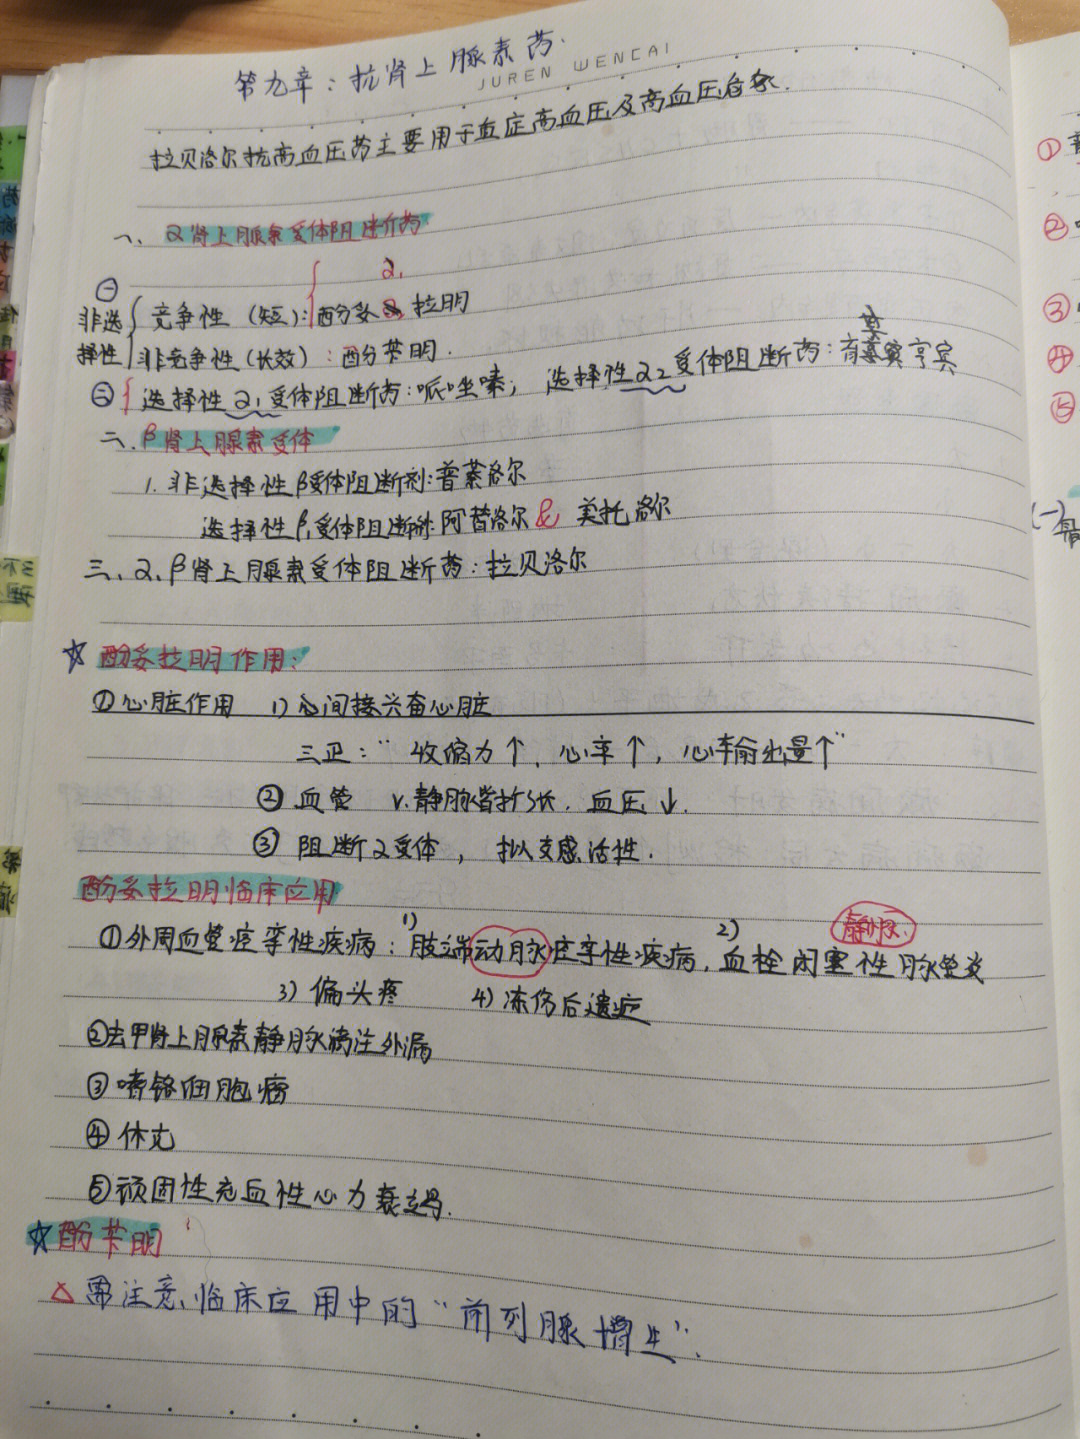 第九章：抗肾上腺素药.
JUREN WENCAI
拉贝洛尔抗高血压药主要用于重症高血压及高血压
一、α肾上腺素受体阻断药
㊀
α₁
非选 竞争性（短）：酚妥 α₂ 拉明
择性 非竞争性（长效）：酚苄明.
㊁ 选择性α₁受体阻断药：哌唑嗪； 选择性α₂受体阻断药：育亨宾
二、β肾上腺素受体
1. 非选择性β受体阻断剂：普萘洛尔
选择性β₁受体阻断 阿替洛尔 & 美托洛尔
三、α、β肾上腺素受体阻断药：拉贝洛尔
☆ 酚妥拉明作用：
①心脏作用 1）心间接兴奋心脏
三正："收缩力↑、心率↑，心输出量↑"
② 血管 V.静脉皆扩张.血压↓.
③ 阻断α受体，拟交感活性.
酚妥拉明临床应用
静脉
①外周血管痉挛性疾病：1）肢端动脉痉挛性疾病. 2）血栓闭塞性脉管炎
3）偏头疼 4）冻伤后遗症
②去甲肾上腺素静脉滴注外漏
③ 嗜铬细胞瘤
④ 休克
⑤顽固性充血性心力衰竭.
☆酚苄明
△ 需注意、临床应用中的"前列腺增生".
①
②
③
④
⑤
(一)